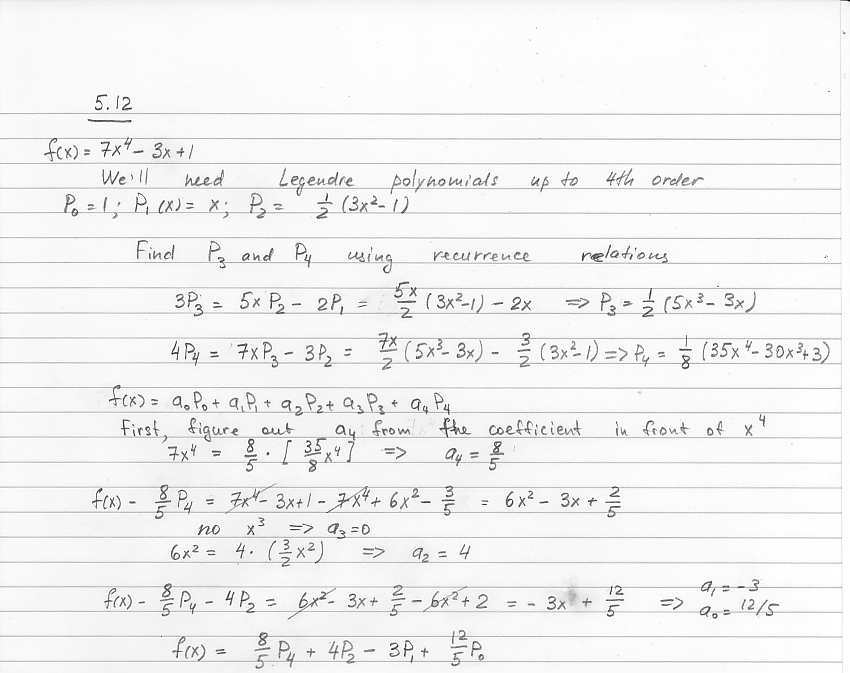 5.12
f(x) = 7x⁴ - 3x + 1
We'll need Legendre polynomials up to 4th order
P₀ = 1; P₁(x) = x; P₂ = 1/2 (3x² - 1)
Find P₃ and P₄ using recurrence relations
3P₃ = 5x P₂ - 2P₁ = 5x/2 (3x² - 1) - 2x => P₃ = 1/2 (5x³ - 3x)
4P₄ = 7xP₃ - 3P₂ = 7x/2 (5x³ - 3x) - 3/2 (3x² - 1) => P₄ = 1/8 (35x⁴ - 30x³ + 3)
f(x) = a₀P₀ + a₁P₁ + a₂P₂ + a₃P₃ + a₄P₄
First, figure out a₄ from the coefficient in front of x⁴
7x⁴ = 8/5 · [35/8 x⁴] => a₄ = 8/5
f(x) - 8/5 P₄ = 7x⁴ - 3x + 1 - 7x⁴ + 6x² - 3/5 = 6x² - 3x + 2/5
no x³ => a₃ = 0
6x² = 4 · (3/2 x²) => a₂ = 4
f(x) - 8/5 P₄ - 4P₂ = 6x² - 3x + 2/5 - 6x² + 2 = - 3x + 12/5 => a₁ = -3
a₀ = 12/5
f(x) = 8/5 P₄ + 4P₂ - 3P₁ + 12/5 P₀